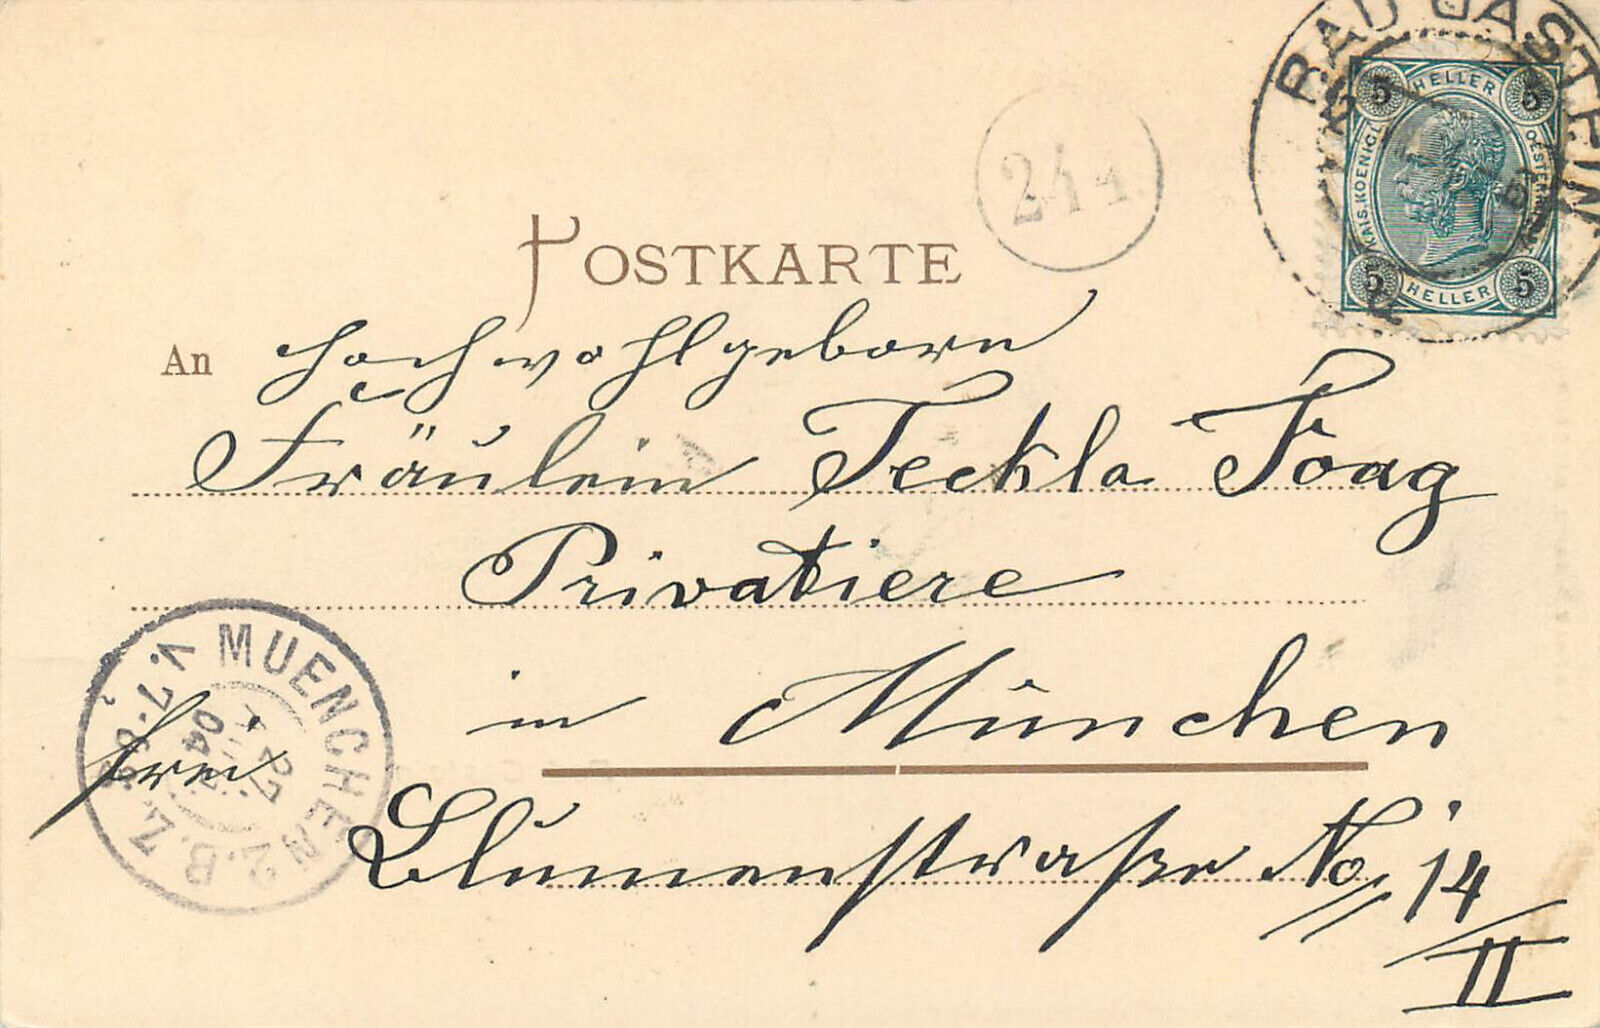 BAD GASTEIN
HELLER
5 5
KAIS. KOENIGL.
5 5
HELLER
244
POSTKARTE
An hochwohlgeborn
Fräulein Teckla Foag
Privatiere
in München
frei
Blumenstraße No 14
II
MUENCHEN 2.B.Z.
V. 7-8
27
04